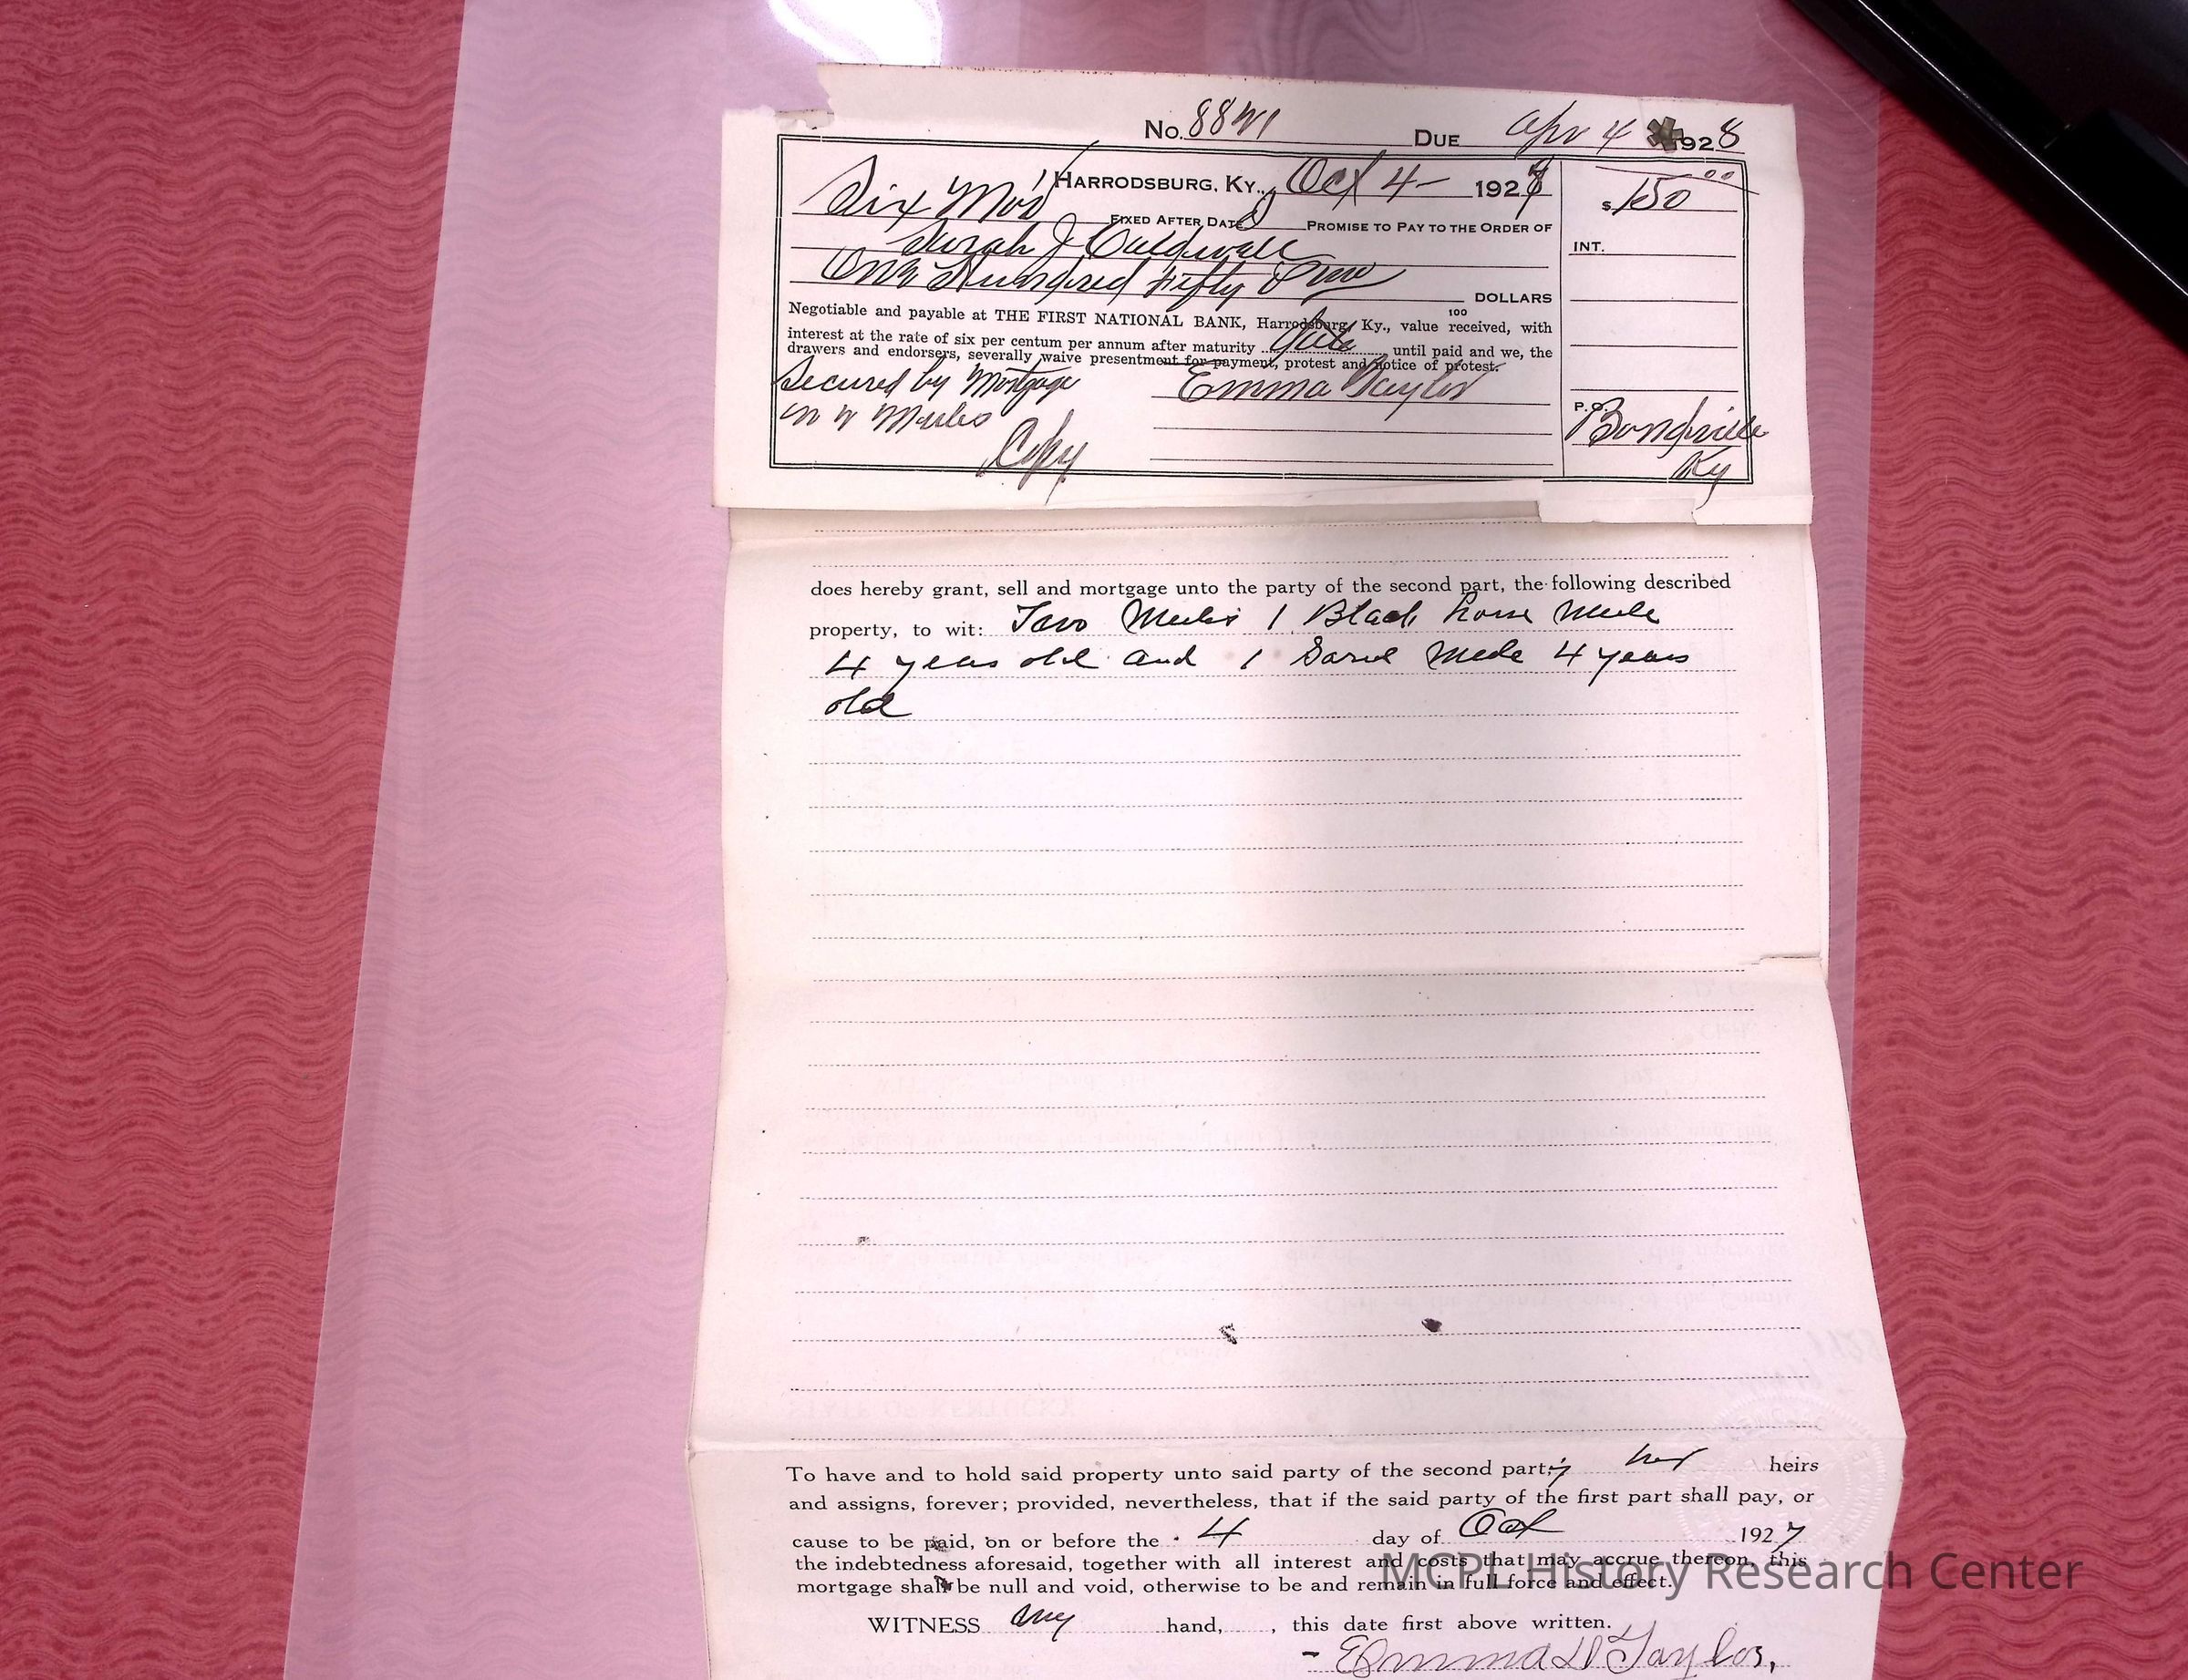 No. 8821 DUE Apr 4 1928
HARRODSBURG, KY., Oct 4- 1927
$150 00
Six Mos FIXED AFTER DATE I PROMISE TO PAY TO THE ORDER OF
Sarah J Caldwell
INT.
One Hundred Fifty & no DOLLARS
100
Negotiable and payable at THE FIRST NATIONAL BANK, Harrodsburg, Ky., value received, with
interest at the rate of six per centum per annum after maturity date until paid and we, the
drawers and endorsers, severally waive presentment for payment, protest and notice of protest.
Secured by Mortgage Emma Taylor
on 2 Mules
P.O. Bondville
Copy
Ky
does hereby grant, sell and mortgage unto the party of the second part, the following described
property, to wit: Two Mules 1 Black horse Mule
4 years old and 1 Sorrel Mule 4 years
old
To have and to hold said property unto said party of the second part, her heirs
and assigns, forever; provided, nevertheless, that if the said party of the first part shall pay, or
cause to be paid, on or before the 4 day of Oct 1927
the indebtedness aforesaid, together with all interest and costs that may accrue thereon, this
mortgage shall be null and void, otherwise to be and remain in full force and effect.
MCPL History Research Center
WITNESS my hand, , this date first above written.
Emma D Taylor,